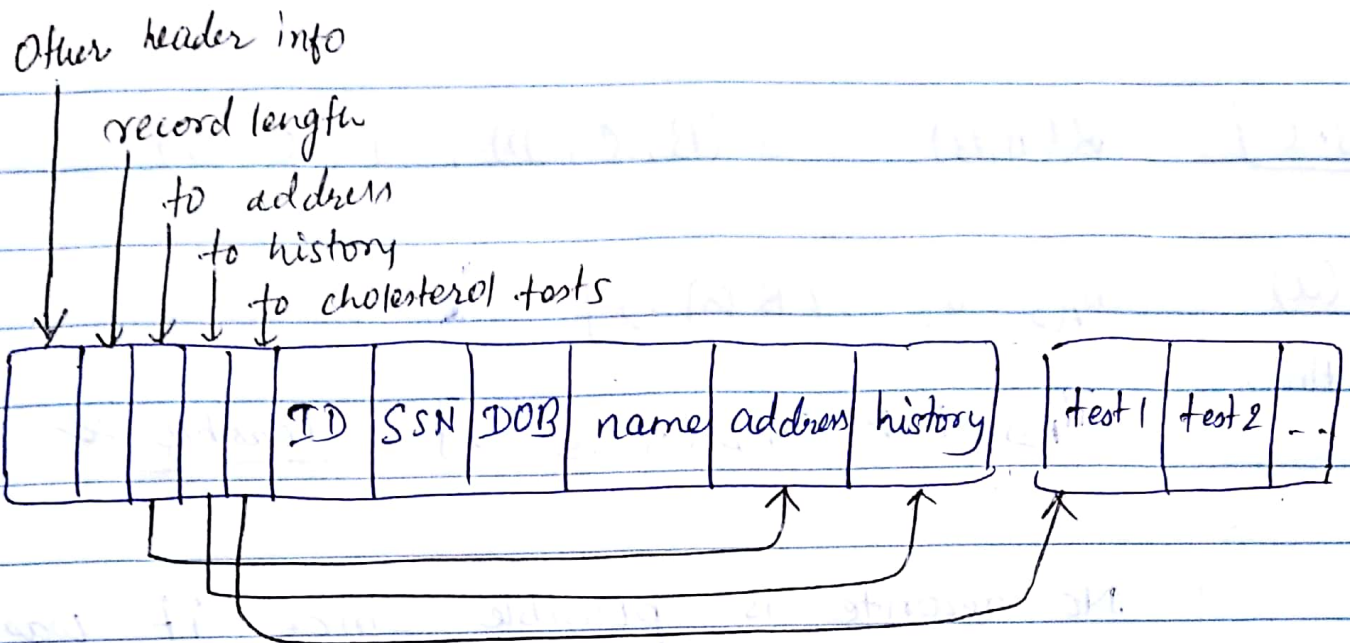 Other header info
record length
to address
to history
to cholesterol tosts
ID SSN DOB name address history test 1 test 2 ..